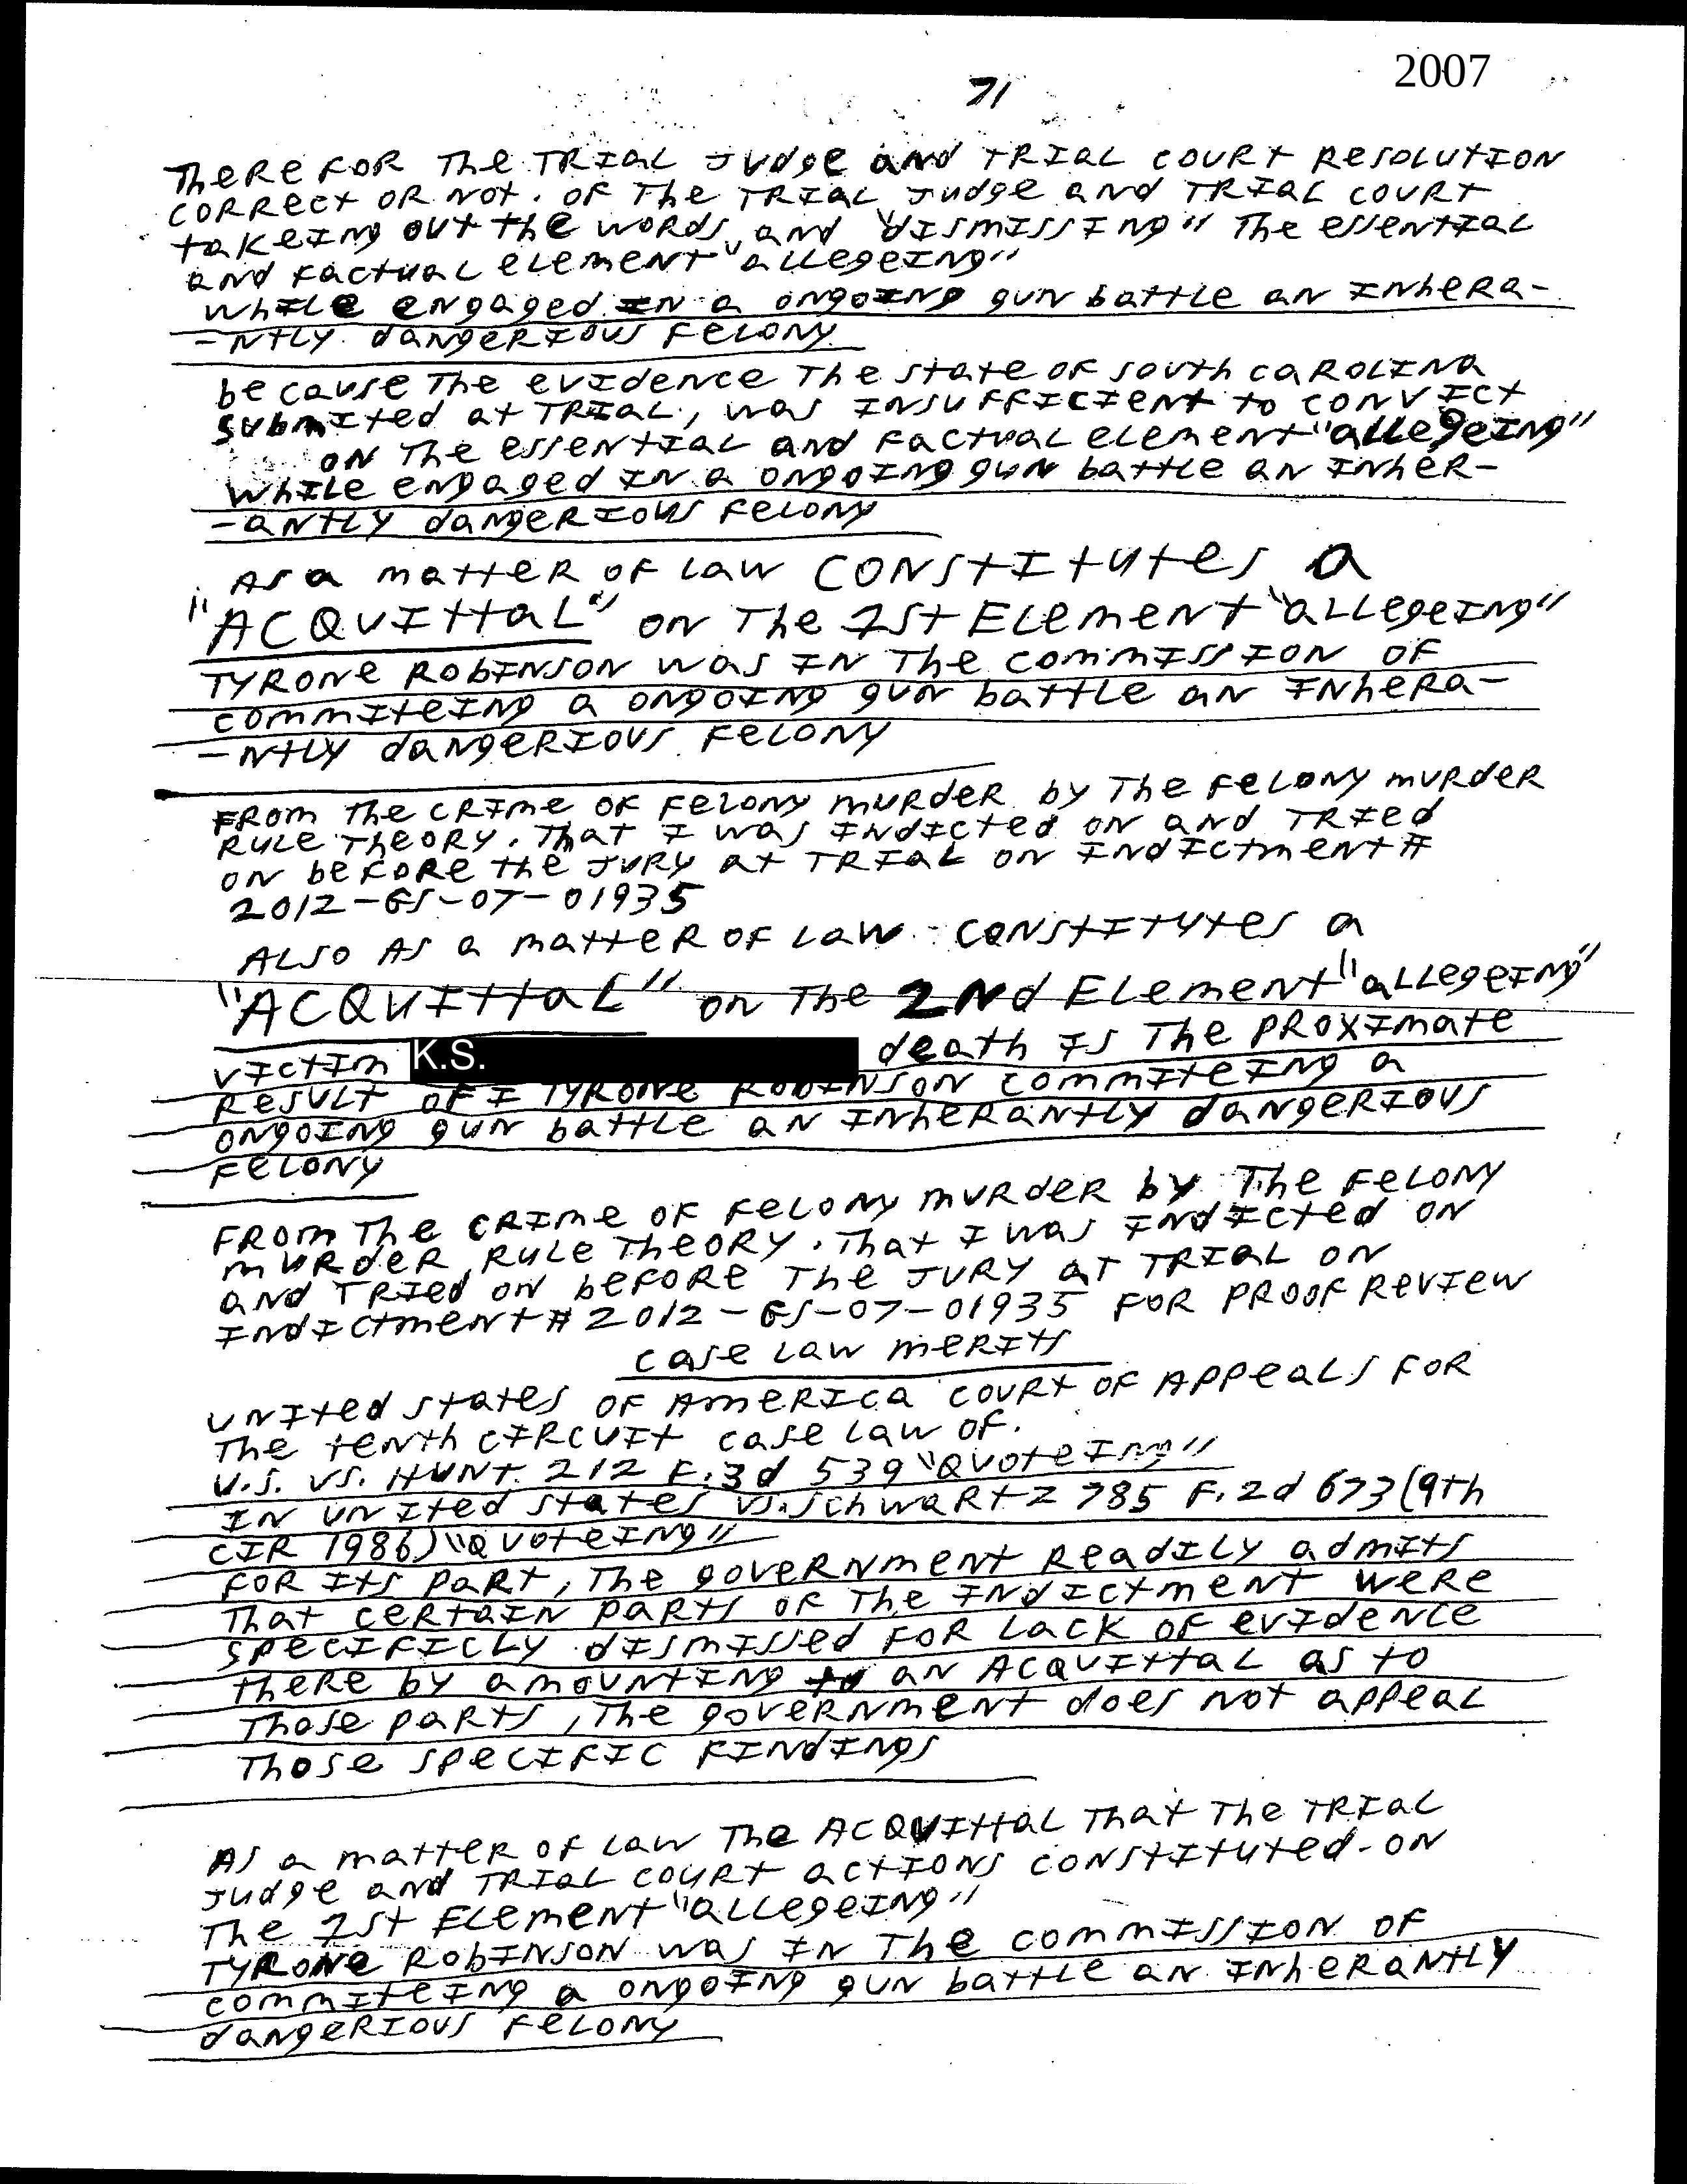 2007
71
THERE FOR THE TRIAL JUDGE AND TRIAL COURT RESOLUTION
CORRECT OR NOT. OF THE TRIAL JUDGE AND TRIAL COURT
TAKEING OUT THE WORDS, AND "DISMISSING" THE ESSENTIAL
AND FACTUAL ELEMENT "ALLEGEING"
WHILE ENGAGED IN A ONGOING GUN BATTLE AN INHERA-
-NTLY DANGERIOUS FELONY
BE CAUSE THE EVIDENCE THE STATE OF SOUTH CAROLINA
SUBMITED AT TRIAL, WAS INSUFFICIENT TO CONVICT
ON THE ESSENTIAL AND FACTUAL ELEMENT "ALLEGEING"
WHILE ENGAGED IN A ONGOING GUN BATTLE AN INHER-
-ANTLY DANGERIOUS FELONY
AS A MATTER OF LAW CONSTITUTES A
"ACQUITTAL" ON THE 1ST ELEMENT "ALLEGEING"
TYRONE ROBINSON WAS IN THE COMMISSION OF
COMMITEING A ONGOING GUN BATTLE AN INHERA-
-NTLY DANGERIOUS FELONY
FROM THE CRIME OF FELONY MURDER BY THE FELONY MURDER
RULE THEORY. THAT I WAS INDICTED ON AND TRIED
ON BEFORE THE JURY AT TRIAL ON INDICTMENT #
2012-GS-07-01935
ALSO AS A MATTER OF LAW CONSTITUTES A
"ACQUITTAL" ON THE 2ND ELEMENT "ALLEGEING"
VICTIM K.S. DEATH IS THE PROXIMATE
RESULT OF I TYRONE ROBINSON COMMITEING A
ONGOING GUN BATTLE AN INHERANTLY DANGERIOUS
FELONY
FROM THE CRIME OF FELONY MURDER BY THE FELONY
MURDER RULE THEORY. THAT I WAS INDICTED ON
AND TRIED ON BEFORE THE JURY AT TRIAL ON
INDICTMENT # 2012-GS-07-01935 FOR PROOF REVIEW
CASE LAW MERITS
UNITED STATES OF AMERICA COURT OF APPEALS FOR
THE TENTH CIRCUIT CASE LAW OF.
U.S. VS. HUNT. 212 F.3d 539 "QUOTEING"
IN UNITED STATES VS. SCHWARTZ 785 F.2d 673 (9th
CIR 1986) "QUOTEING"
FOR ITS PART, THE GOVERNMENT READILY ADMITS
THAT CERTAIN PARTS OF THE INDICTMENT WERE
SPECIFICLY DISMISSED FOR LACK OF EVIDENCE
THERE BY AMOUNTING TO AN ACQUITTAL AS TO
THOSE PARTS, THE GOVERNMENT DOES NOT APPEAL
THOSE SPECIFIC FINDINGS
AS A MATTER OF LAW THE ACQUITTAL THAT THE TRIAL
JUDGE AND TRIAL COURT ACTIONS CONSTITUTED-ON
THE 1ST ELEMENT "ALLEGEING"
TYRONE ROBINSON WAS IN THE COMMISSION OF
COMMITEING A ONGOING GUN BATTLE AN INHERANTLY
DANGERIOUS FELONY